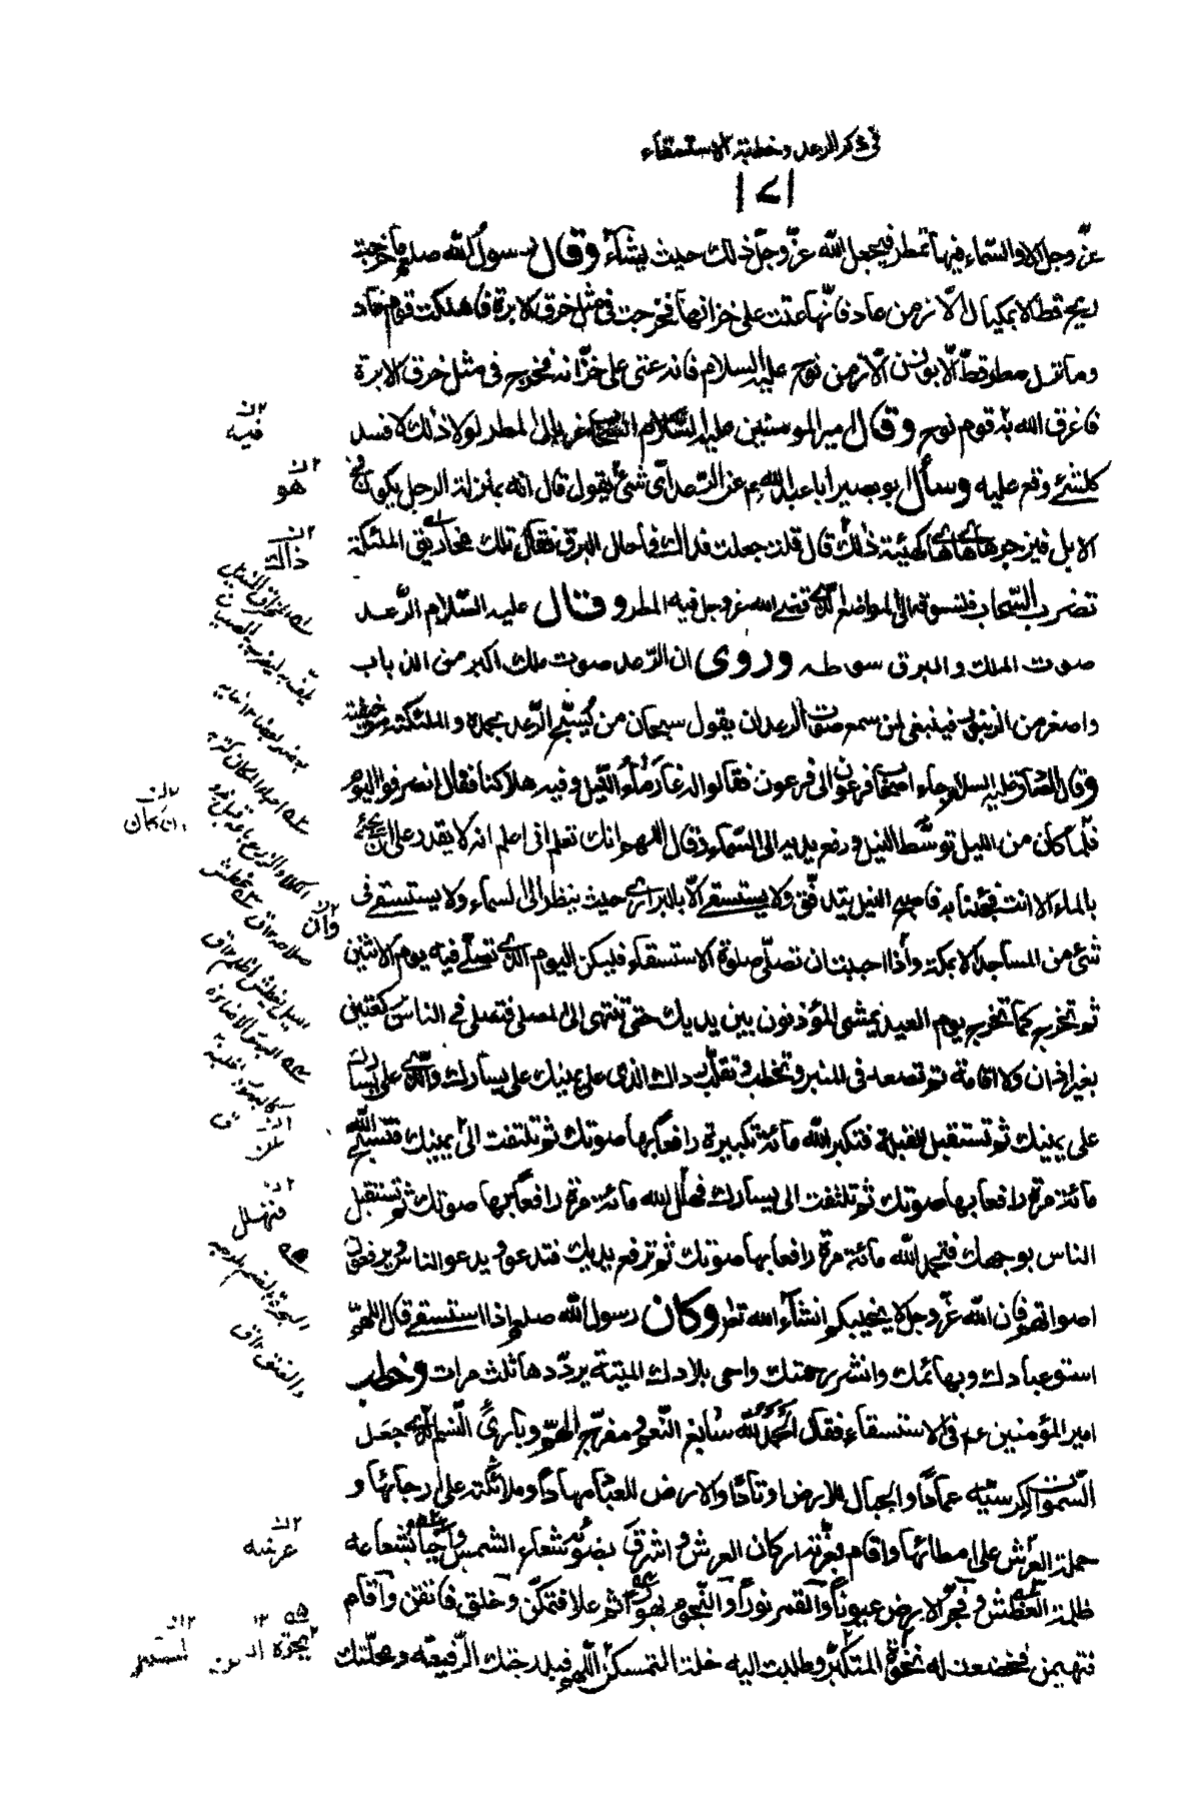 في ذكر الرعد وخطبة الاستسقاء
١٧١
عزّ وجل الا والسّماء فيها تمطر فيجعل الله عزّ وجلّ ذلك حيث يشآء وقال رسول الله صلعم ما خرجت
ريح قط الا بمكيال الّا زمن عاد فانّها عتت على خزانها فخرجت في مثل خرق الابرة فاهلكت قوم عاد
وما نزل مطر قطّ الّا بوزن الّا زمن نوح عليه السلام فانه عتى على خزّانه فخرج في مثل خرق الابرة
فاغرق الله به قوم نوح وقال امير المومنين عليه السّلام السّحاب غربال المطر لولا ذلك لافسد
كلشئ وقع عليه وسأل ابو بصير ابا عبد الله ع عن الرّعد ايّ شئ يقول قال انّه بمنزلة الرجل يكون في
الابل فيزجرها هاي هاي كهيئة ذلك قال قلت جعلت فداك فما حال البرق فقال تلك مخاريق الملئكة
تضرب السّحاب فتسوقه الى المواضع الّذي قضى الله عزوجل فيه المطر وقال عليه السّلام الرّعد
صوت الملك والبرق سوطه وروى ان الرّعد صوت ملك اكبر من الذباب
واصغر من الزنبور فينبغي لمن سمع صوت الرعد ان يقول سبحان من يُسبّح الرّعد بحمده والملئكة من خيفته
وقال الصّادق عليه السلام جاء اصحاب فرعون الى فرعون فقالوا له غار ماء النّيل وفيه هلاكنا فقال انصرفوا اليوم
فلمّا كان من الليل توسّط النيل ورفع يديه الى السّماء وقال اللهم انك تعلم اني اعلم انه لا يقدر على ان يجئ
بالماء الا انت فجئنا به فاصبح النيل يتدفّق ولا يستسقى الّا بالبراري حيث ينظر الى السماء ولا يستسقى في
شئ من المساجد الا بمكة واذا احببت ان تصلّي صلوة الاستسقاء فليكن اليوم الّذي تصلّي فيه يوم الاثنين
ثم تخرج كما تخرج يوم العيد يمشي المؤذنون بين يديك حتى تنتهي الى المصلى فتصلي في الناس ركعتين
بغير اذان ولا اقامة ثم تصعد في المنبر وتخطب وتقلّب رداءك الذي على يمينك على يسارك والّذي على يسارك
على يمينك ثم تستقبل القبلة فتكبر الله مائة تكبيرة رافعا بها صوتك ثم تلتفت الى يمينك فتسبّح الله
مائة مرّة رافعا بها صوتك ثم تلتفت الى يسارك فتهلل الله مائة مرّة رافعا بها صوتك ثم تستقبل
الناس بوجهك فتحمد الله مائة مرّة رافعا بها صوتك ثم ترفع يديك فتدعو ويدعو الناس ويرفعون
اصواتهم فان الله عزّ وجل لا يخيبكم انشآء الله تعالى وكان رسول الله صلعم اذا استسقى قال اللهمّ
اسق عبادك وبهائمك وانشر رحمتك واحي بلادك الميّتة يردّدها ثلث مرات وخطب
امير المؤمنين عم في الاستسقاء فقال الحمد لله سابغ النّعم ومفرّج الهمّ وبارئ النّسم الّذي جعل
السّموات لكرسيّه عماداً والجبال للارض اوتاداً والارض للعباد مهاداً وملائكته على ارجائها و
حملة العرش على امطائها واقام بعزّته اركان العرش واشرق بضوئه شعاع الشمس واجبا بشعاعه
ظلمة الغطش وفجّر الارض عيوناً والقمر نوراً والنّجوم بهوراً ثم علا فتمكّن وخلق فاتقن واقام
فتهيمن فخضعت له نخوة المتكبّر وطلبت اليه خلّة المتمسكن اللّهم فبدرجتك الرّفيعة ومحلّتك
فيه
هو
ذاك
وان
فتهلل
عرشه